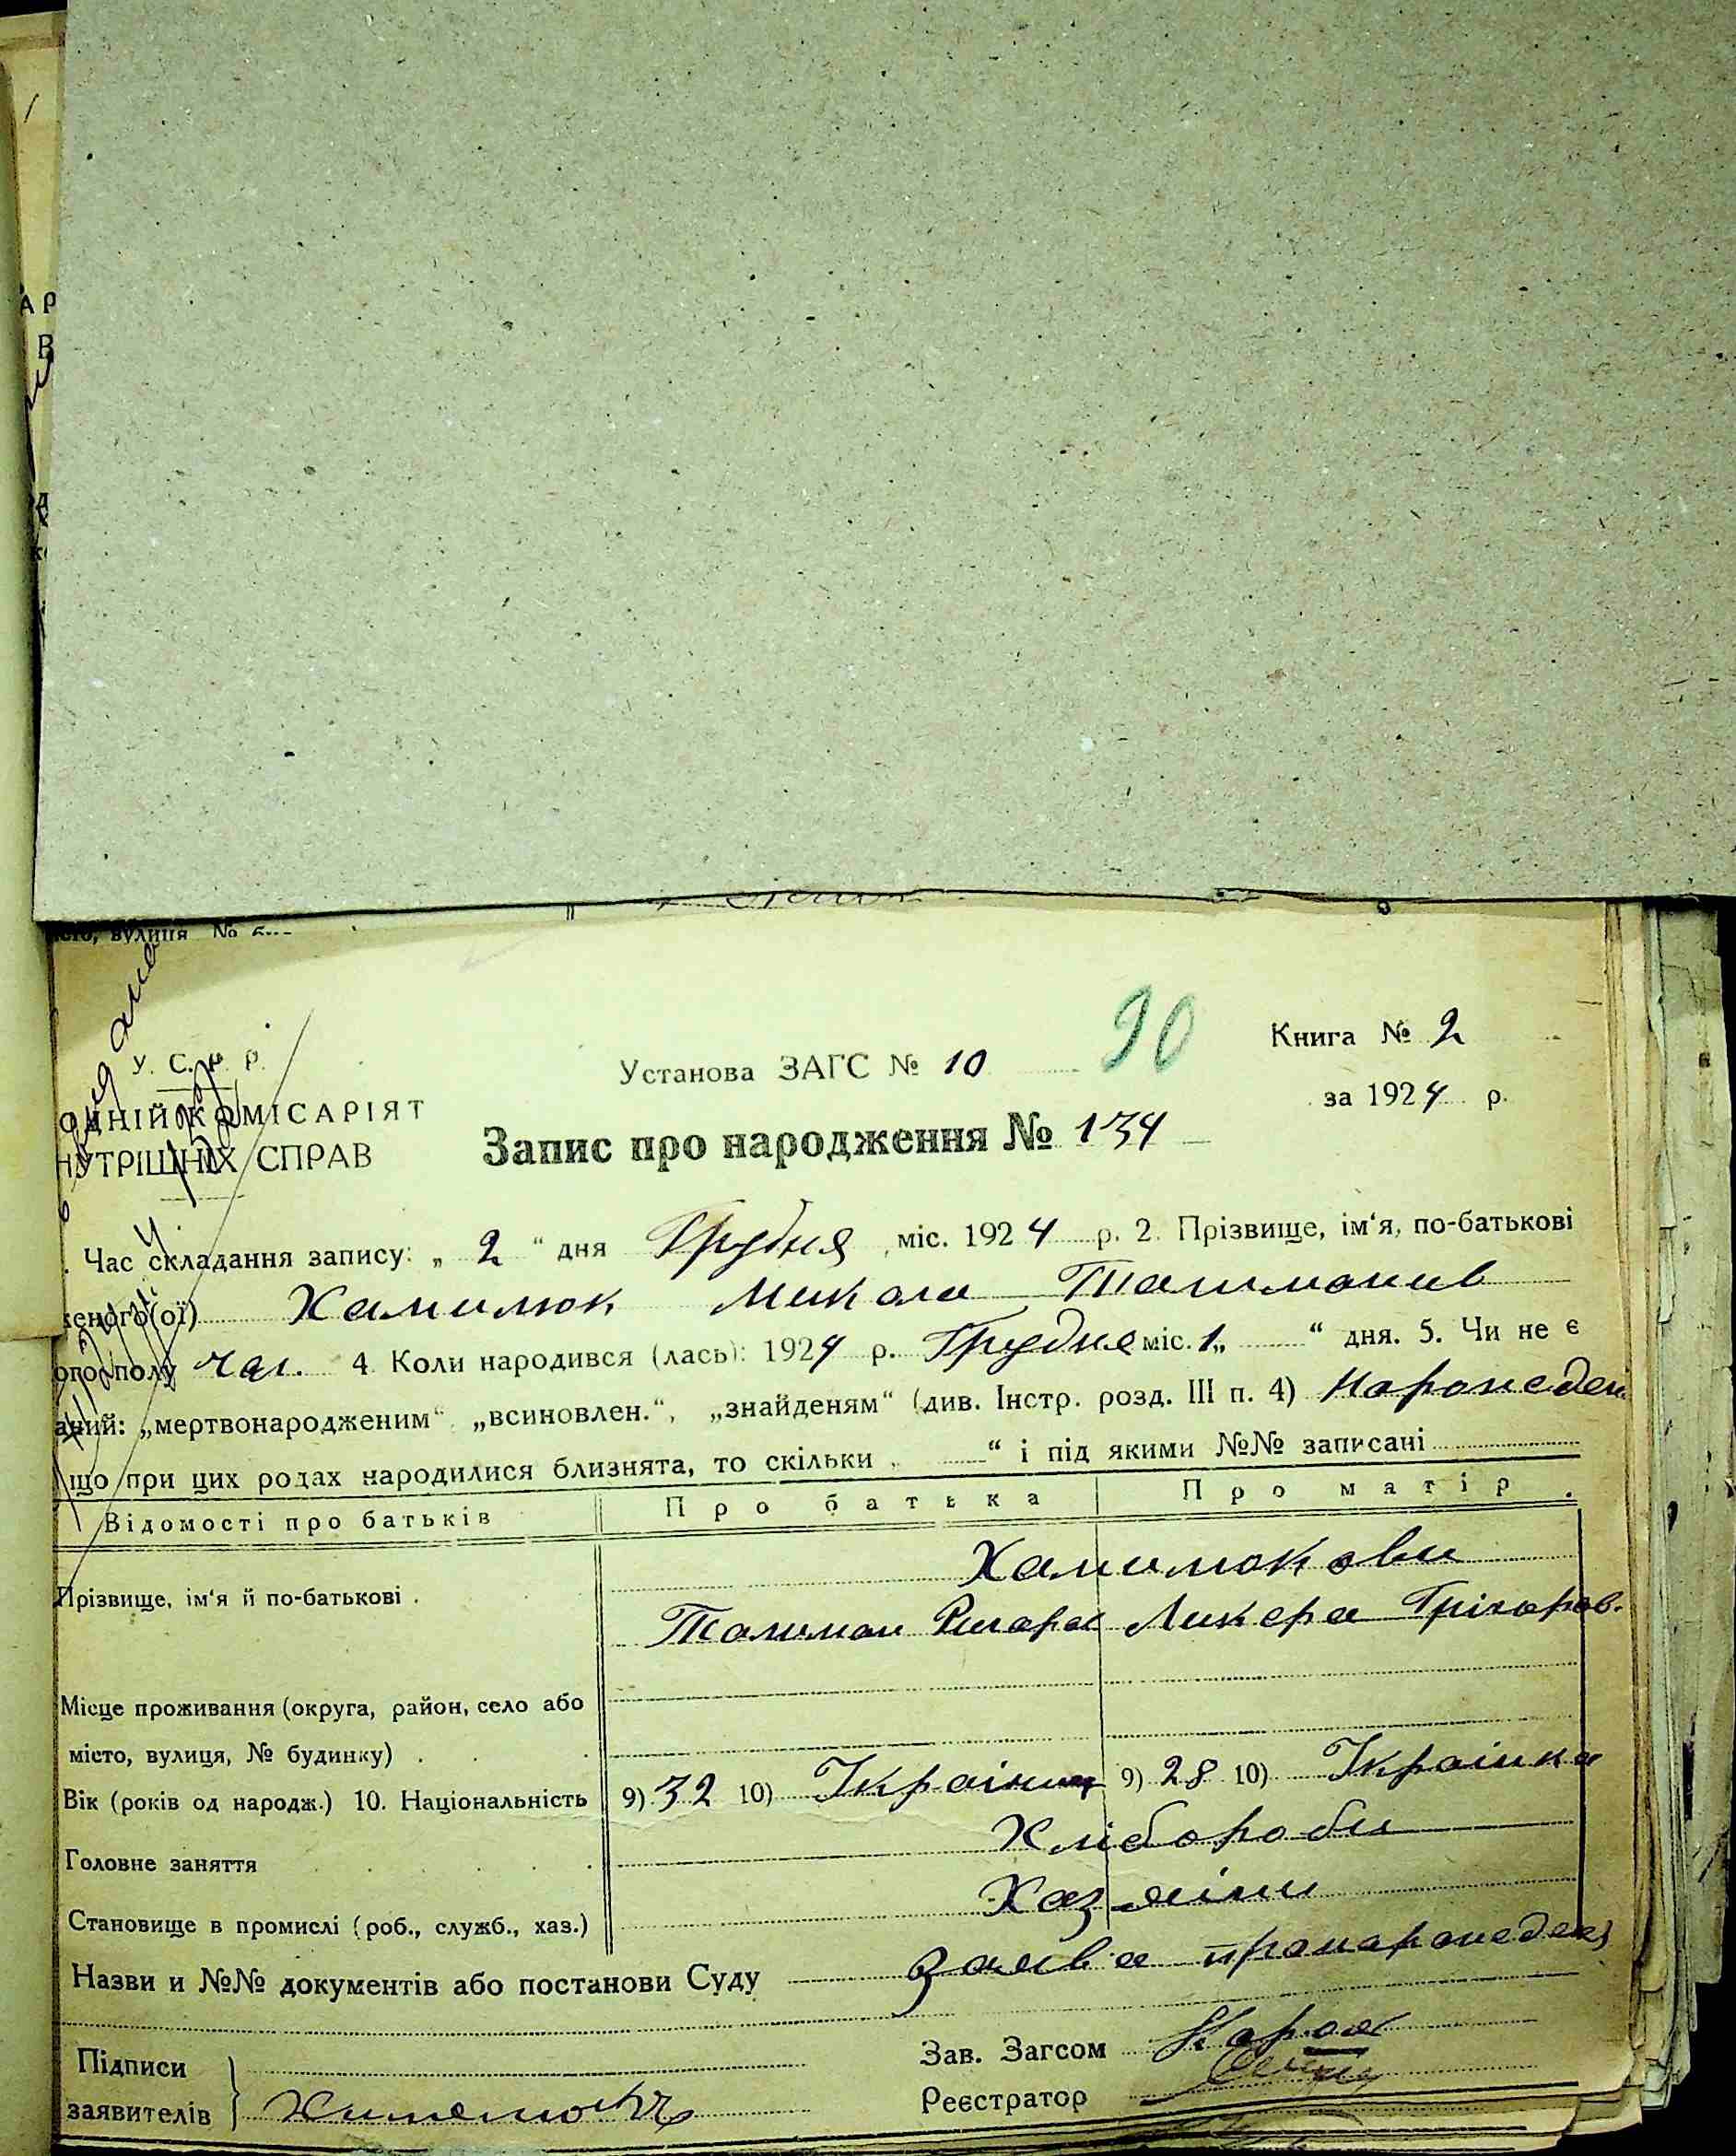 У. С. Р. Р.
Установа ЗАГС № 10
90
Книга № 2
за 1924 р.
ОДНІЙ КОМІСАРІЯТ
НУТРІШНІХ СПРАВ
Запис про народження № 134
Час складання запису: „ 2 “ дня Грудня міс. 1924 р. 2. Прізвище, ім‘я, по-батькові
женого(ої) Хамилюк Микола Талимонів
ого полу чол. 4. Коли народився (лась): 1924 р. Грудня міс. 1 „ “ дня. 5. Чи не є
аний: „мертвонародженим“, „всиновлен.“, „знайденям“ (див. Інстр. розд. III п. 4) Нарожеден
що при цих родах народилися близнята, то скільки „ “ і під якими №№ записані
Відомості про батьків Про батька Про матір
Прізвище, ім‘я й по-батькові Хамилюкови
Талимон Лікера Грігоров.
Місце проживання (округа, район, село або
місто, вулиця, № будинку)
Вік (років од народж.) 10. Національність 9) 32 10) Їкраінец 9) 28 10) Їкраінка
Головне заняття Хлібороби
Становище в промислі (роб., служб., хаз.) Хазяіни
Назви и №№ документів або постанови Суду Заява пронарожеден
Підписи Зав. Загсом
заявителів Реєстратор